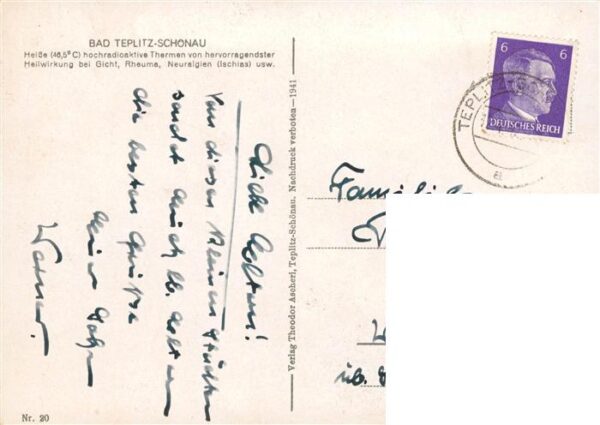 BAD TEPLITZ-SCHÖNAU
Heiße (46,5° C) hochradioaktive Thermen von hervorragendster
Heilwirkung bei Gicht, Rheuma, Neuralgien (Ischias) usw.
Liebe Eltern!
Von dieser kleinen Städtchen
sendet Euch lb. Eltern
die besten Grüße
Euer Sohn
Werner.
Verlag Theodor Ascherl, Teplitz-Schönau. Nachdruck verboten—1941
6 6
DEUTSCHES REICH
TEPLITZ-SCHÖ
a
Familie
üb.
Nr. 20